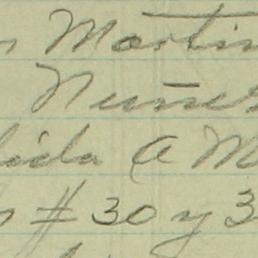 Martin
Nuñez
lida A M
# 30 y 3